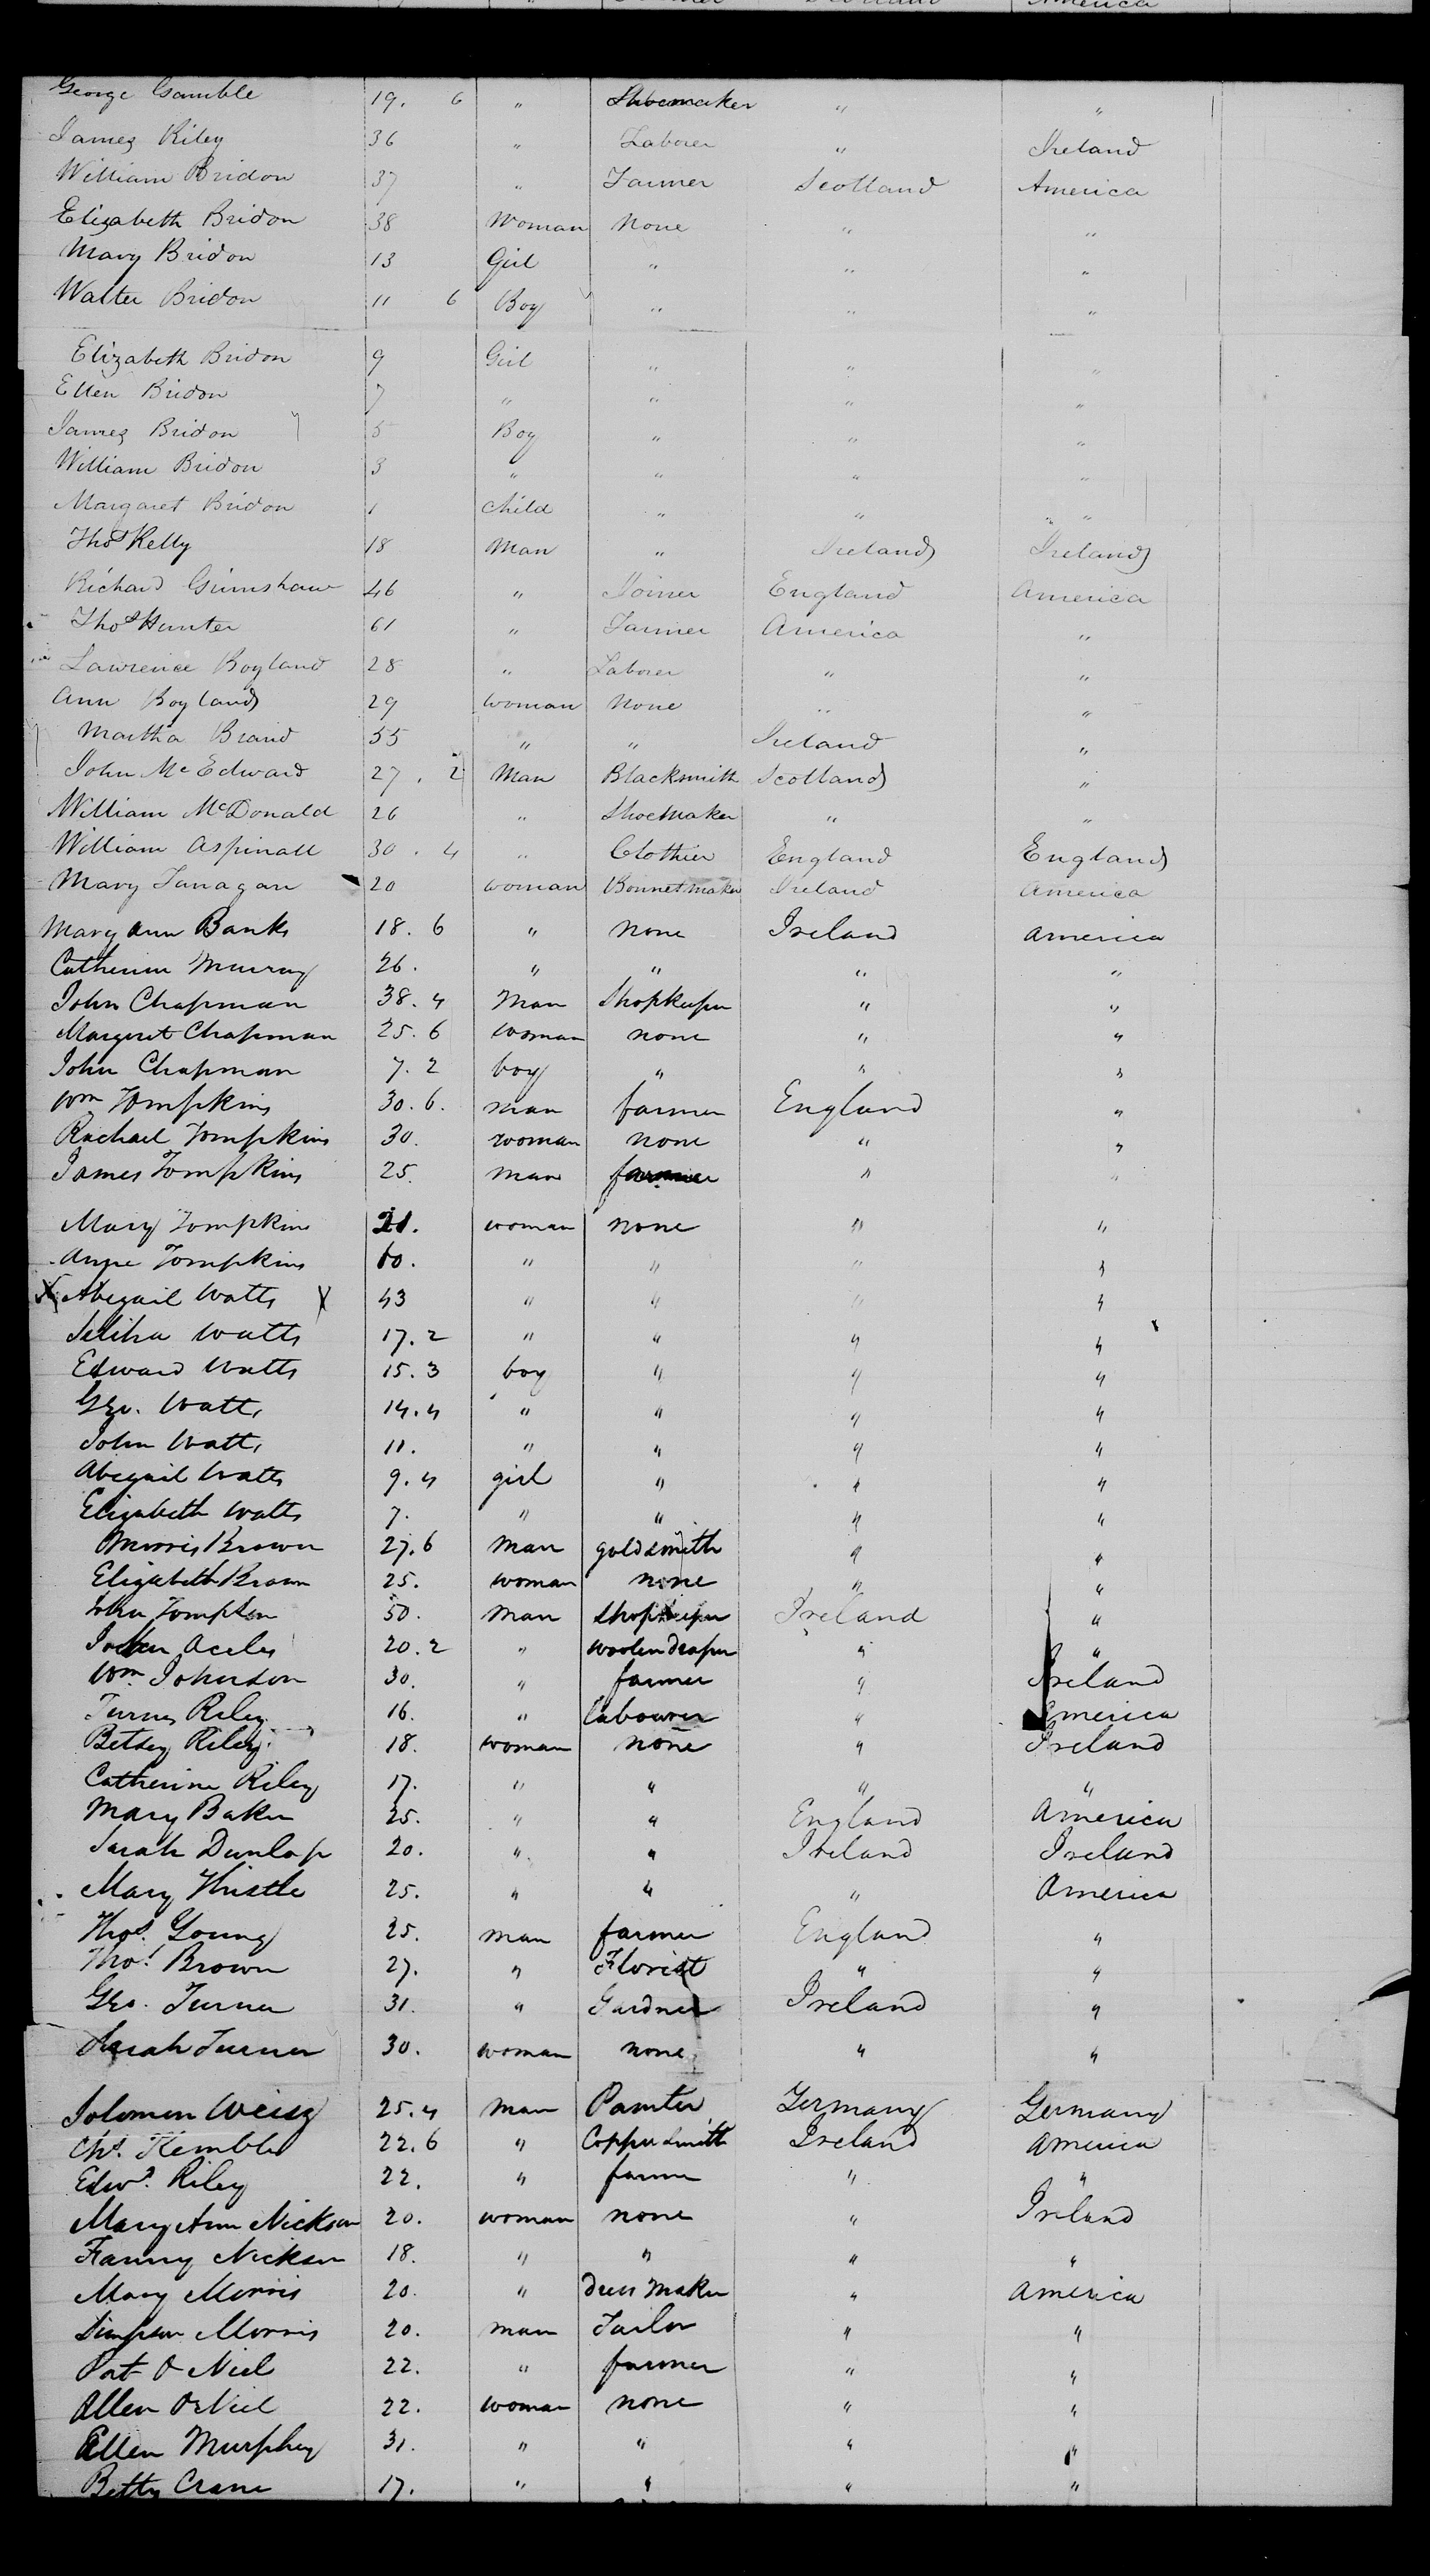 America
George Gamble 19. 6 " Shoemaker " "
James Riley 36 " Laborer " Ireland
William Bridon 37 " Farmer Scotland America
Elizabeth Bridon 38 Woman None " "
Mary Bridon 13 Girl " " "
Walter Bridon 11 6 Boy " " "
Elizabeth Bridon 9 Girl " " "
Ellen Bridon 7 " " " "
James Bridon 5 Boy " " "
William Bridon 3 " " " "
Margaret Bridon 1 Child " " "
Thos Kelly 18 Man " Ireland Ireland
Richard Grimshaw 46 " Joiner England America
Thos Hunter 61 " Farmer America "
Lawrence Boyland 28 " Laborer " "
Ann Boyland 29 woman None " "
Martha Brand 55 " " Ireland "
John McEdward 27. 2 Man Blacksmith Scotland "
William McDonald 26 " Shoemaker " "
William Aspinall 30. 4 " Clothier England England
Mary Fanagan 20 woman Bonnetmaker Ireland America
Mary Ann Banks 18. 6 " None Ireland America
Catherine Murray 26. " " " "
John Chapman 38. 4 Man Shopkeeper " "
Margaret Chapman 25. 6 woman none " "
John Chapman 7. 2 boy " " "
Wm Tompkins 30. 6. man farmer England "
Rachael Tompkins 30. woman none " "
James Tompkins 25. man farmer " "
Mary Tompkins 21. woman none " "
Anne Tompkins 60. " " " "
X Abigail Watts X 43 " " " "
Watts 17. 2 " " " "
Edward Watts 15. 3 boy " " "
Geo. Watts 14. 4 " " " "
John Watts 11. " " " "
Abigail Watts 9. 4 girl " " "
Elizabeth Watts 7. " " " "
Morris Brown 27. 6 Man goldsmith " "
Elizabeth Brown 25. woman none " "
John 50. Man Shopkeeper Ireland "
20. 2 " woolen draper " "
Wm. Johnson 30. " farmer " Ireland
Riley 16. " labourer " America
Betsey Riley 18. woman none " Ireland
Catherine Riley 17. " " " "
Mary Baker 25. " " England America
Sarah Dunlap 20. " " Ireland Ireland
Mary Thistle 25. " " " America
Thos. Young 25. man farmer England "
Thos. Brown 27. " Florist " "
Geo. Turner 31. " Gardner Ireland "
Sarah Turner 30. woman none " "
Solomon Weisz 25. 4 man Painter Germany Germany
Chs. Kembler 22. 6 " Copper Smith Ireland America
Edwd. Riley 22. " farmer " "
Mary Ann Nickson 20. woman none " Ireland
Fanny Nickson 18. " " " "
Mary Morris 20. " dress maker " America
Simpson Morris 20. man Tailor " "
Pat O Niel 22. " farmer " "
Allen O Niel 22. woman none " "
Ellen Murphy 31. " " " "
Betty Crane 17. " " " "